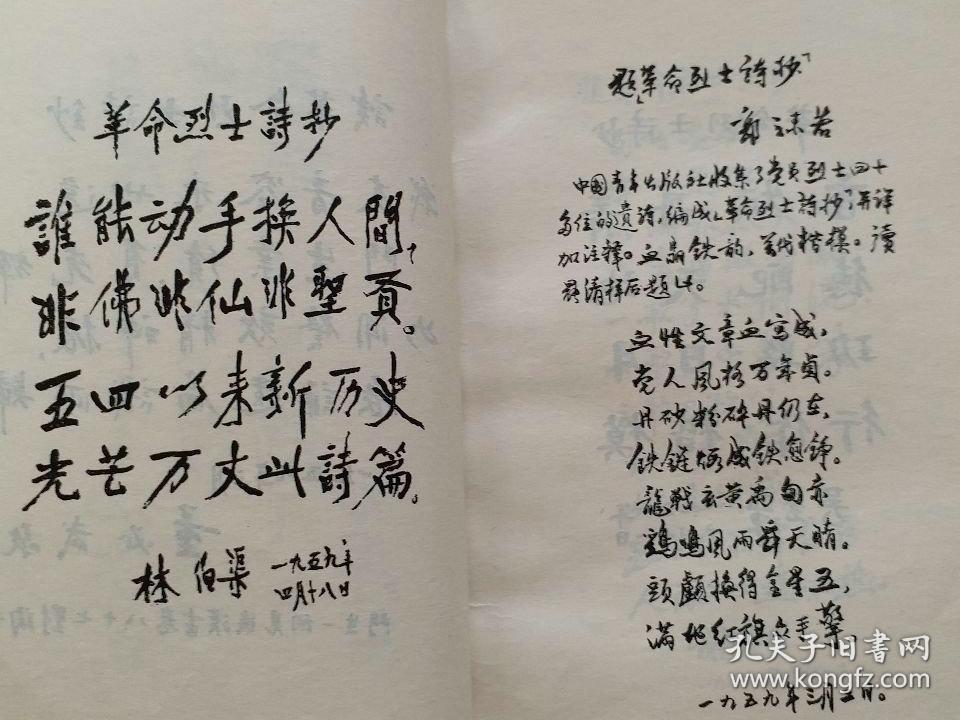 革命烈士詩抄
誰能动手换人間，
非佛非仙非聖賢。
五四以来新历史
光芒万丈此詩篇。
林伯渠 一九五九年
四月十八日
题「革命烈士詩抄」
郭沫若
中國青年出版社收集了党员烈士四十
多位的遗詩，编成「革命烈士詩抄」，并详
加注释。血晶铁韵，万代楷模。讀
清样后题此。
血性文章血写成，
党人风格万年贞。
丹砂粉碎丹仍在，
铁链熔成铁愈铮。
龍戰玄黄禹甸赤
鷄鳴風雨舜天晴。
頭顱换得金星五，
满地红旗众手擎。
一九五九年三月五日。
孔夫子旧书网
kongfz.com